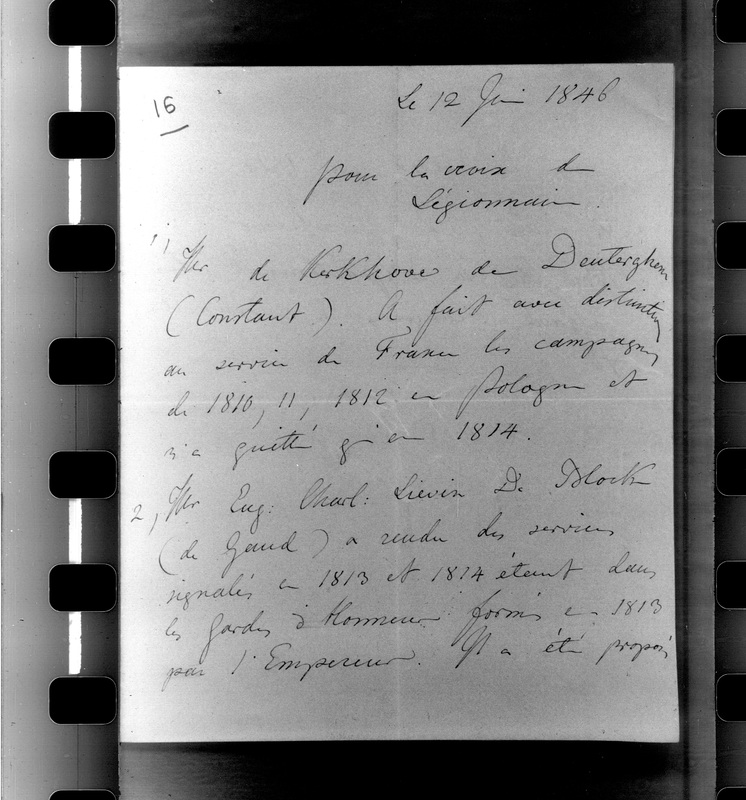 16
Le 12 Juin 1846
pour la croix de
Légionnaire.
1, Mr de Kerkhove de Denterghem
(Constant). A fait avec distinction
au service de France les campagnes
de 1810, 11, 1812 en Pologne et
n'a quitté qu'en 1814.
2, Mr Eug: Charl: Liévin De Block
(de Gand) a rendu des services
signalés en 1813 et 1814 étant dans
les gardes d'Honneur formés en 1813
par l'Empereur. Il a été proposé